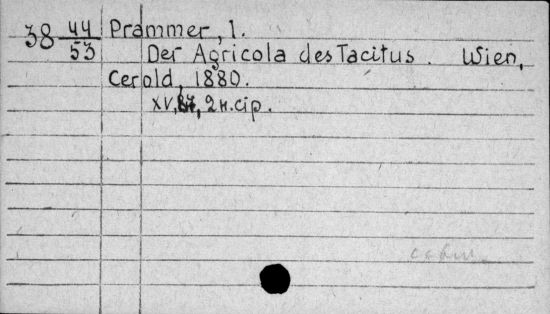 38 44/53 Prammer, I.
Der Agricola des Tacitus. Wien,
Cerold, 1880.
XV, 84, 2 н.cip.